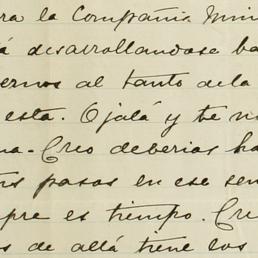 ra la Compañia Mini
á desarrollandose ba
ernos al tanto de la
esta. Ojalá y te m
na. Creo deberias ha
tus pasos en ese sen
pre es tiempo. Cre
s de allá tiene los